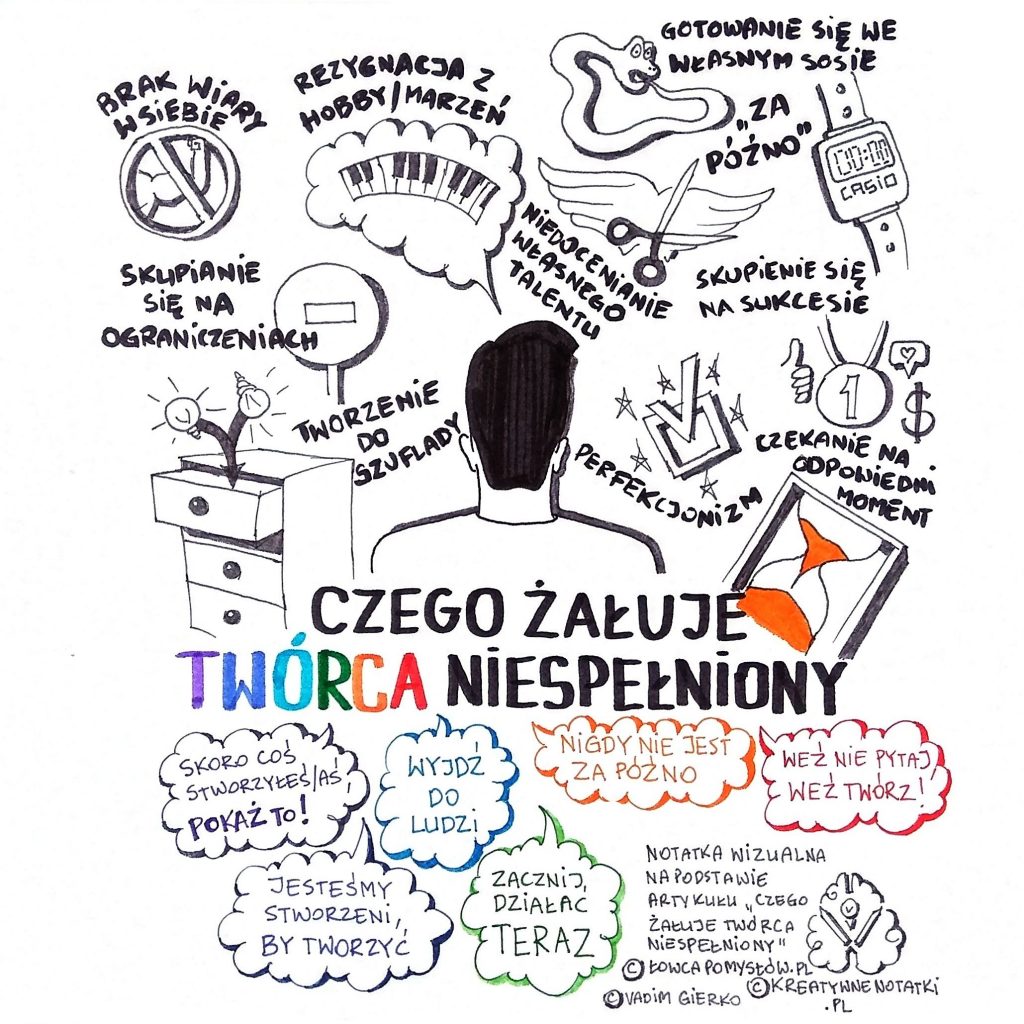 BRAK WIARY
W SIEBIE
REZYGNACJA Z
HOBBY/MARZEŃ
GOTOWANIE SIĘ WE
WŁASNYM SOSIE
„ZA
PÓŹNO"
00:00
CASIO
NIEDOCENIANIE
WŁASNEGO
TALENTU
SKUPIANIE
SIĘ NA
OGRANICZENIACH
SKUPIENIE SIĘ
NA SUKCESIE
1
$
TWORZENIE
DO
SZUFLADY
PERFEKCJONIZM
CZEKANIE NA
ODPOWIEDNI
MOMENT
CZEGO ŻAŁUJE
TWÓRCA NIESPEŁNIONY
SKORO COŚ
STWORZYŁEŚ/AŚ,
POKAŻ TO!
WYJDŹ
DO
LUDZI
NIGDY NIE JEST
ZA PÓŹNO
WEŹ NIE PYTAJ,
WEŹ TWÓRZ!
JESTEŚMY
STWORZENI,
BY TWORZYĆ
ZACZNIJ,
DZIAŁAĆ
TERAZ
NOTATKA WIZUALNA
NA PODSTAWIE
ARTYKUŁU „CZEGO
ŻAŁUJE TWÓRCA
NIESPEŁNIONY"
© ŁOWCAPOMYSŁÓW.PL
© VADIM GIERKO
© KREATYWNENOTATKI
.PL